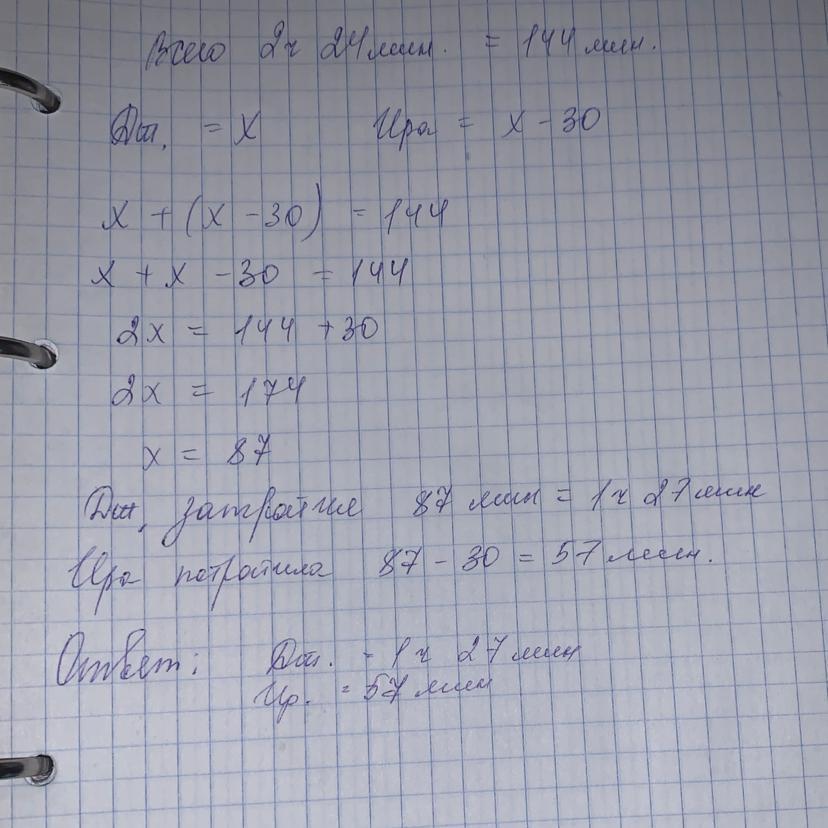 Всего 2ч 24 мин. = 144 мин.
Дм. = x Ира = x - 30
x + (x - 30) = 144
x + x - 30 = 144
2x = 144 + 30
2x = 174
x = 87
Дм. затратил 87 мин = 1ч 27 мин
Ира потратила 87 - 30 = 57 мин.
Ответ: Дм. - 1ч 27 мин
Ир. = 57 мин